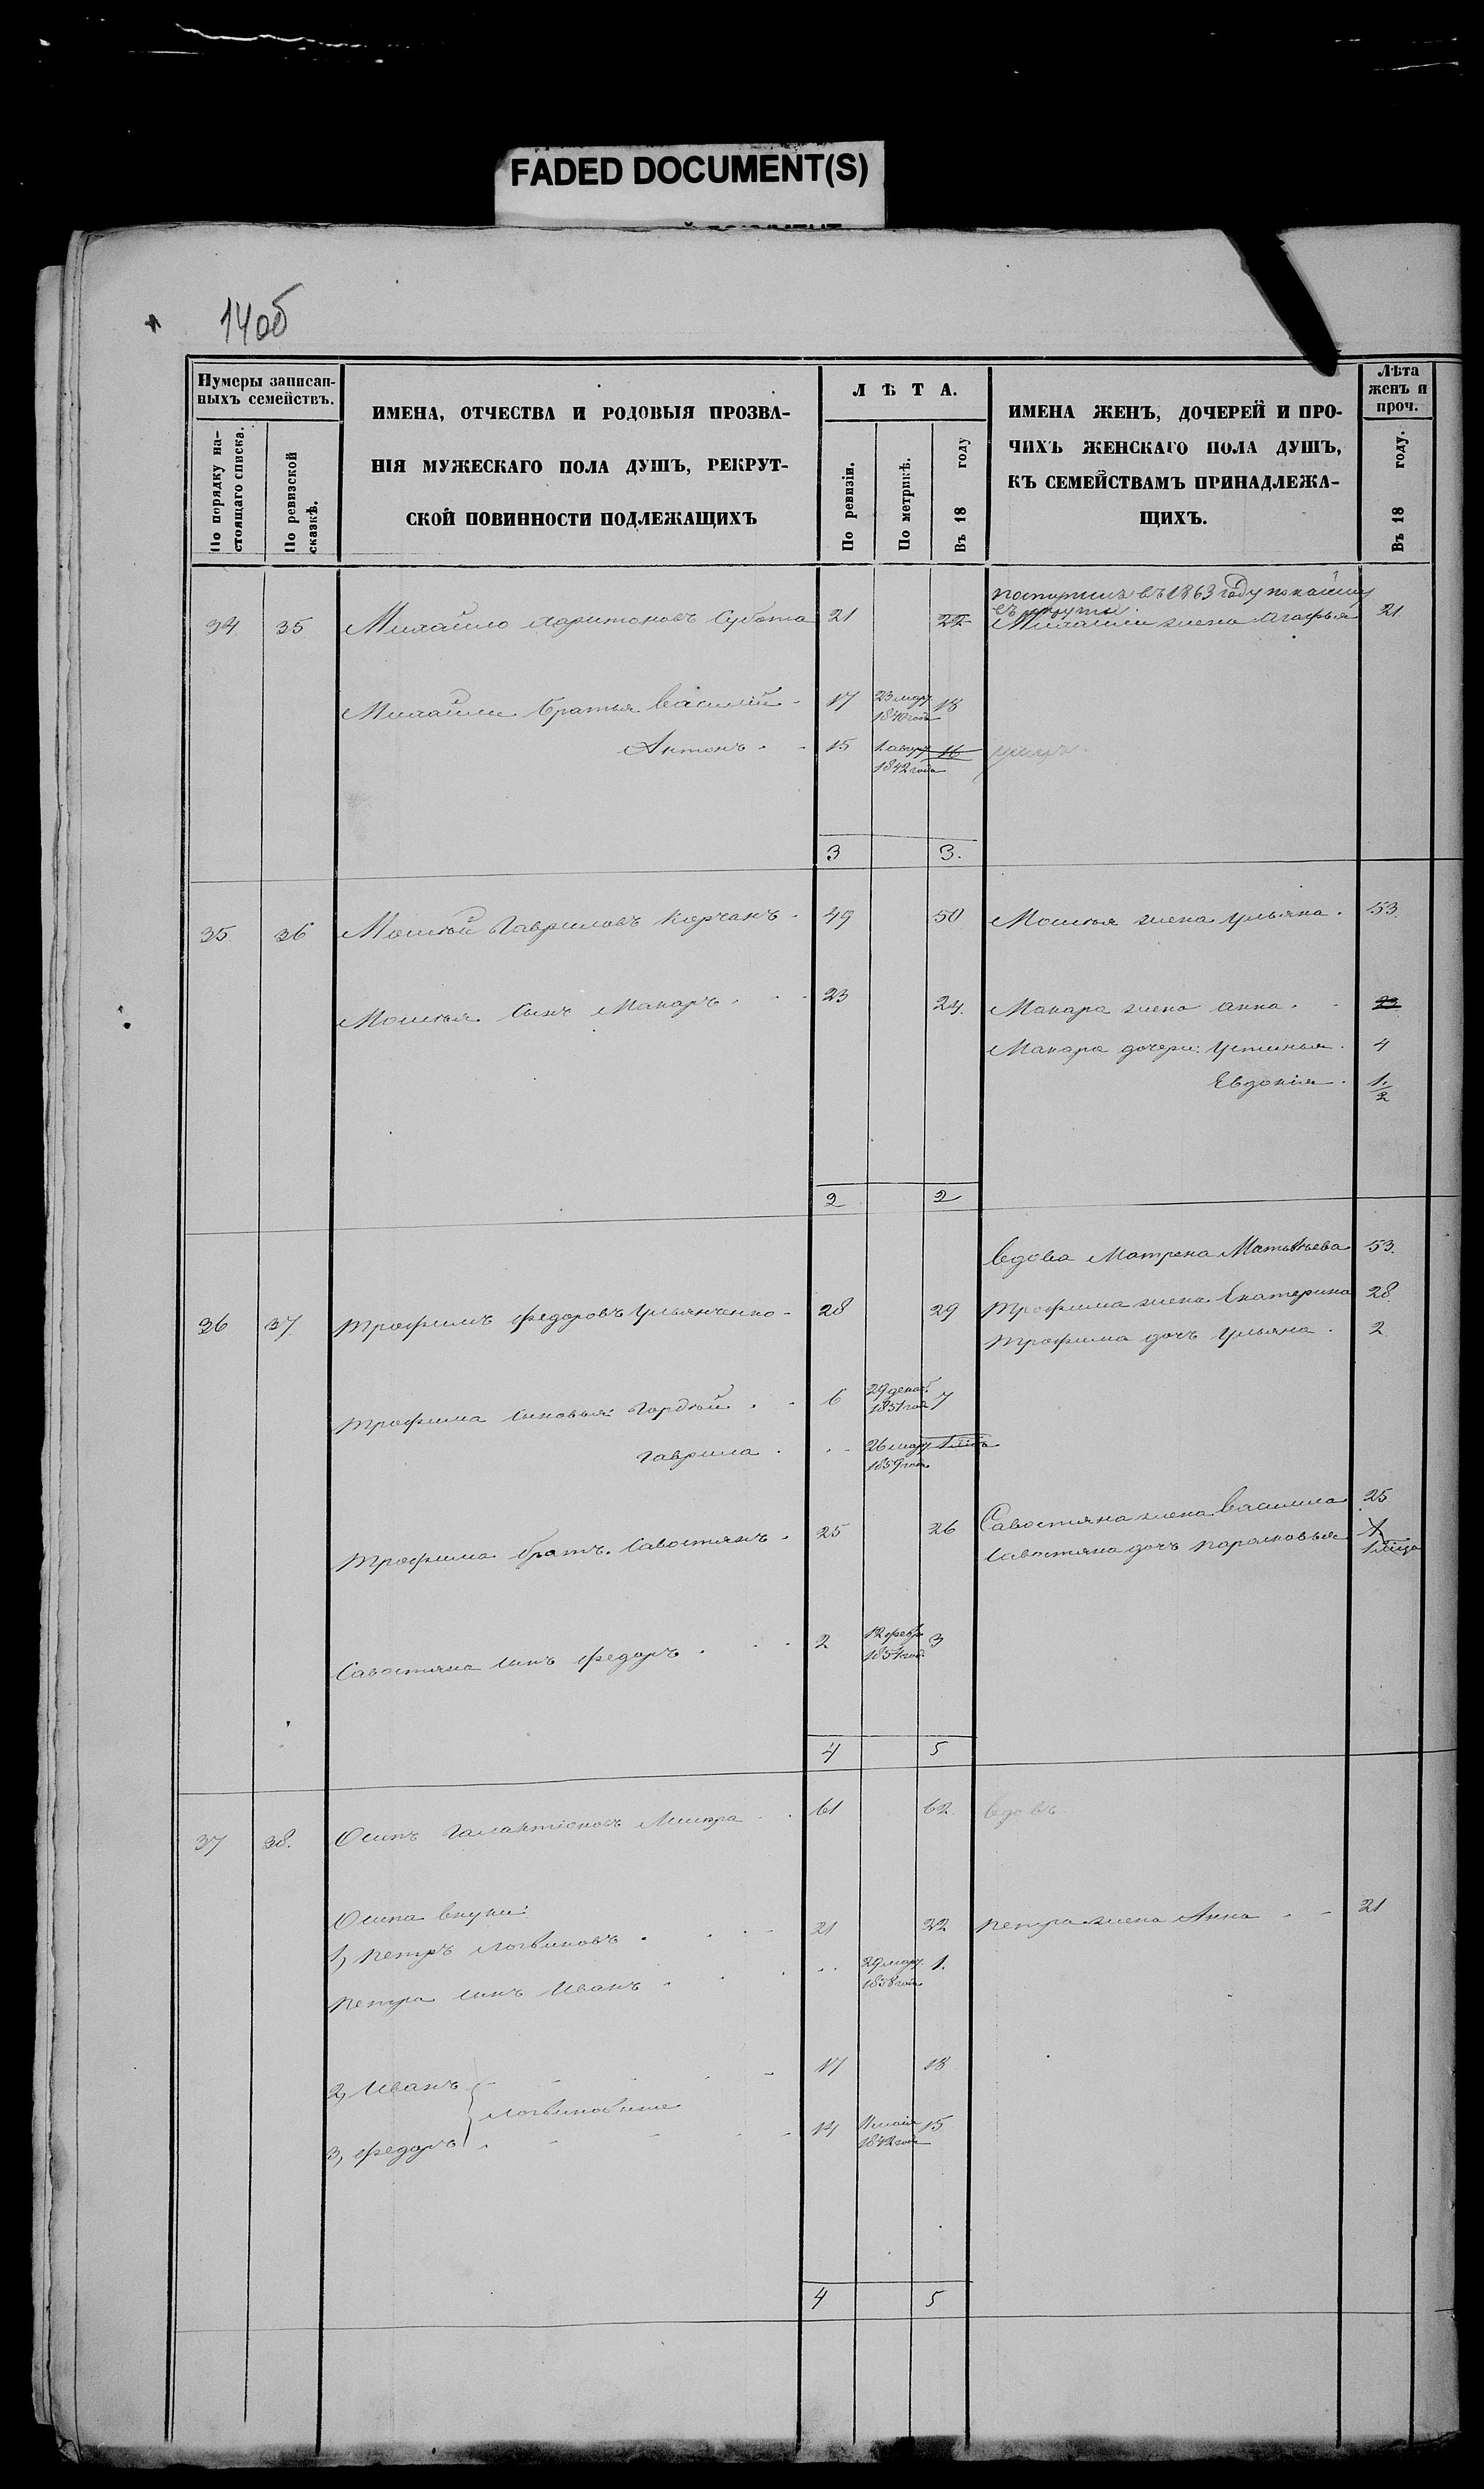 FADED DOCUMENT(S)
14об
Нумеры записан-
ныхъ семействъ.
По порядку на-
стоящаго списка.
По ревизской
сказкѣ.
ИМЕНА, ОТЧЕСТВА И РОДОВЫЯ ПРОЗВА-
НІЯ МУЖЕСКАГО ПОЛА ДУШЪ, РЕКРУТ-
СКОЙ ПОВИННОСТИ ПОДЛЕЖАЩИХЪ
ЛѢТА.
По ревизіи.
По метрикѣ.
Въ 18 году
ИМЕНА ЖЕНЪ, ДОЧЕРЕЙ И ПРО-
ЧИХЪ ЖЕНСКАГО ПОЛА ДУШЪ,
КЪ СЕМЕЙСТВАМЪ ПРИНАДЛЕЖА-
ЩИХЪ.
Лѣта
женъ и
проч.
Въ 18 году.
въ 1863 году
34 35 Михайло Харитоновъ Субота 21 22 Михайли жена Агафья 21
Михайли братья Василій 17 23 мар. 18
1840 года
Антонъ 15 1 16 умеръ
1842 года
3 3.
35 36 Мойсѣй Гавриловъ Корчанъ 49 50 Мойсѣя жена Ульяна. 53.
Мойсѣя сынъ Макаръ 23 24. Макара жена Анна. 23
Макара дочери: Устинья. 4
Евдокія. 1/2
2 2
вдова Матрена Матвѣева 53.
36 37. Трофимъ Федоровъ Ульянченко 28 29 Трофима жена Екатерина 28.
Трофима дочь Ульяна. 2
Трофима сыновья: Гордѣй 6 29 декаб. 7
1851 год
Гаврила 26 мар.
1859 года
Трофима братъ Савостянъ 25 26 Савостяна жена Василиса 25
Савостяна дочь Парасковья
Савостяна сынъ Федоръ 2 12 февр. 3
4 5
37 38. Осипъ Галактіоновъ 61 62. вдовъ
Осипа внуки:
1, Петръ Логвиновъ 21 22 Петра жена Анна 21
Петра сынъ Иванъ 29 мар. 1.
1858 года
2, Иванъ 17 18
Логвиновые
3, Федоръ 14 15
1842 года
4 5